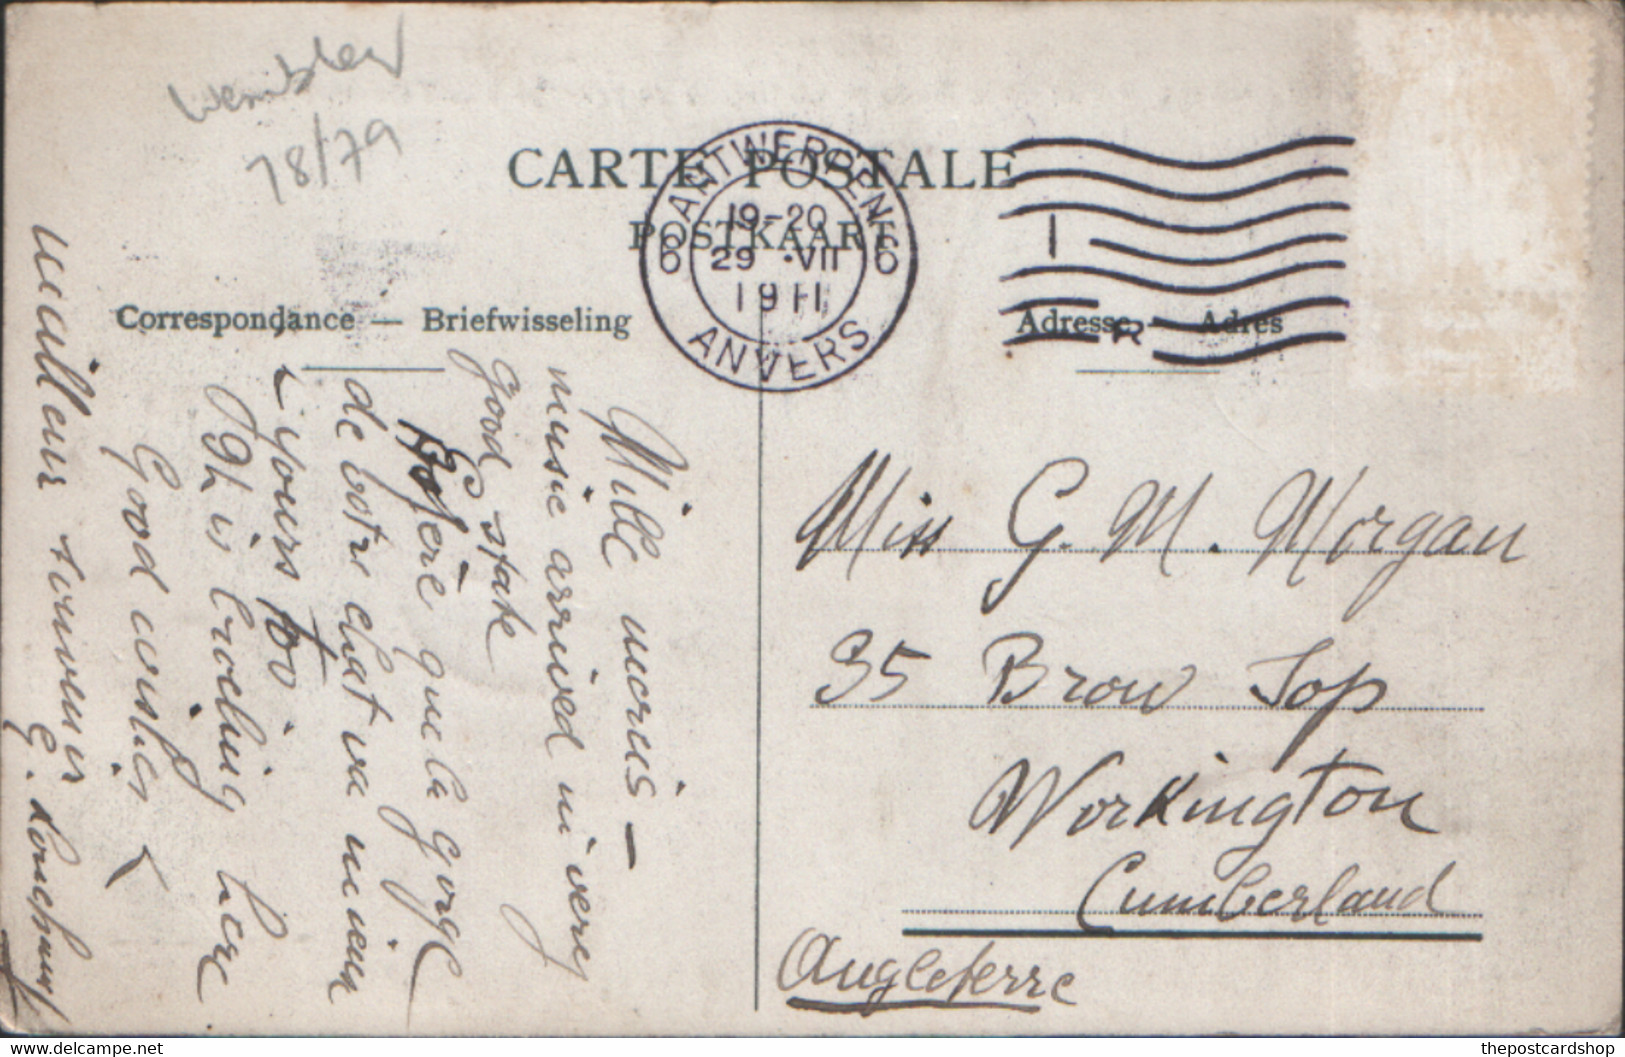 Wembley
78/79
CARTE POSTALE
POSTKAART
ANTWERPEN
6 19-20 6
29 · VII
1911
ANVERS
1
R
Correspondance — Briefwisseling
Adresse — Adres
Mille mercis —
music arrived in very
good state
Espère que la gorge
de votre chat va mieux
yours too
9h is here
Good wishes
meilleur souvenir
G.
Miss G. M. Morgan
35 Brow Top
Workington
Cumberland
Angleterre
www.delcampe.net
thepostcardshop